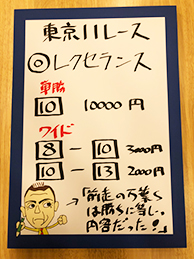 東京11レース
◎レクセランス
単勝
10 10000円
ワイド
8 - 10 3000円
10 - 13 2000円
→「前走の万葉S
は勝ちに等しい
内容だった!」